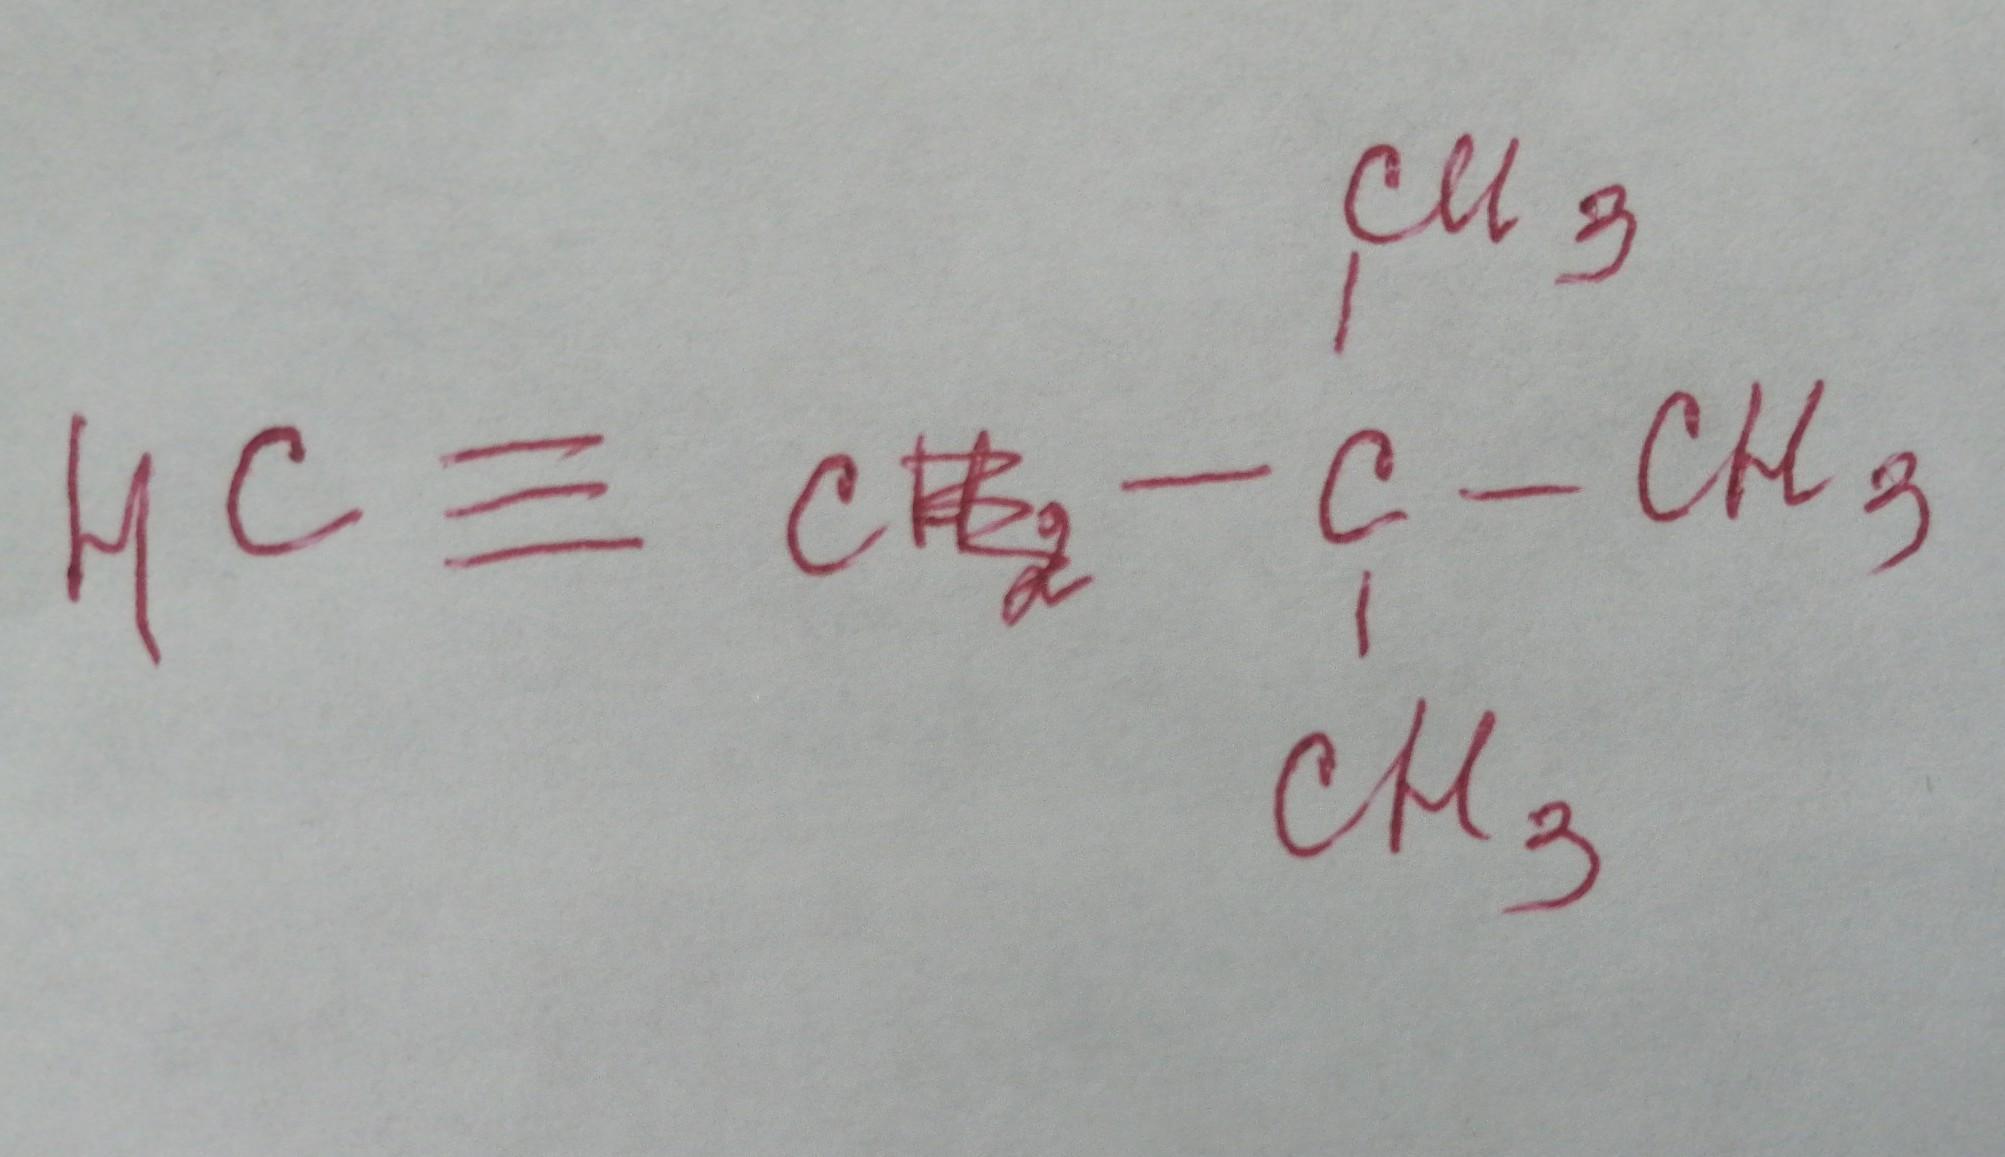 CH3
HC ≡ C — C — CH3
CH3